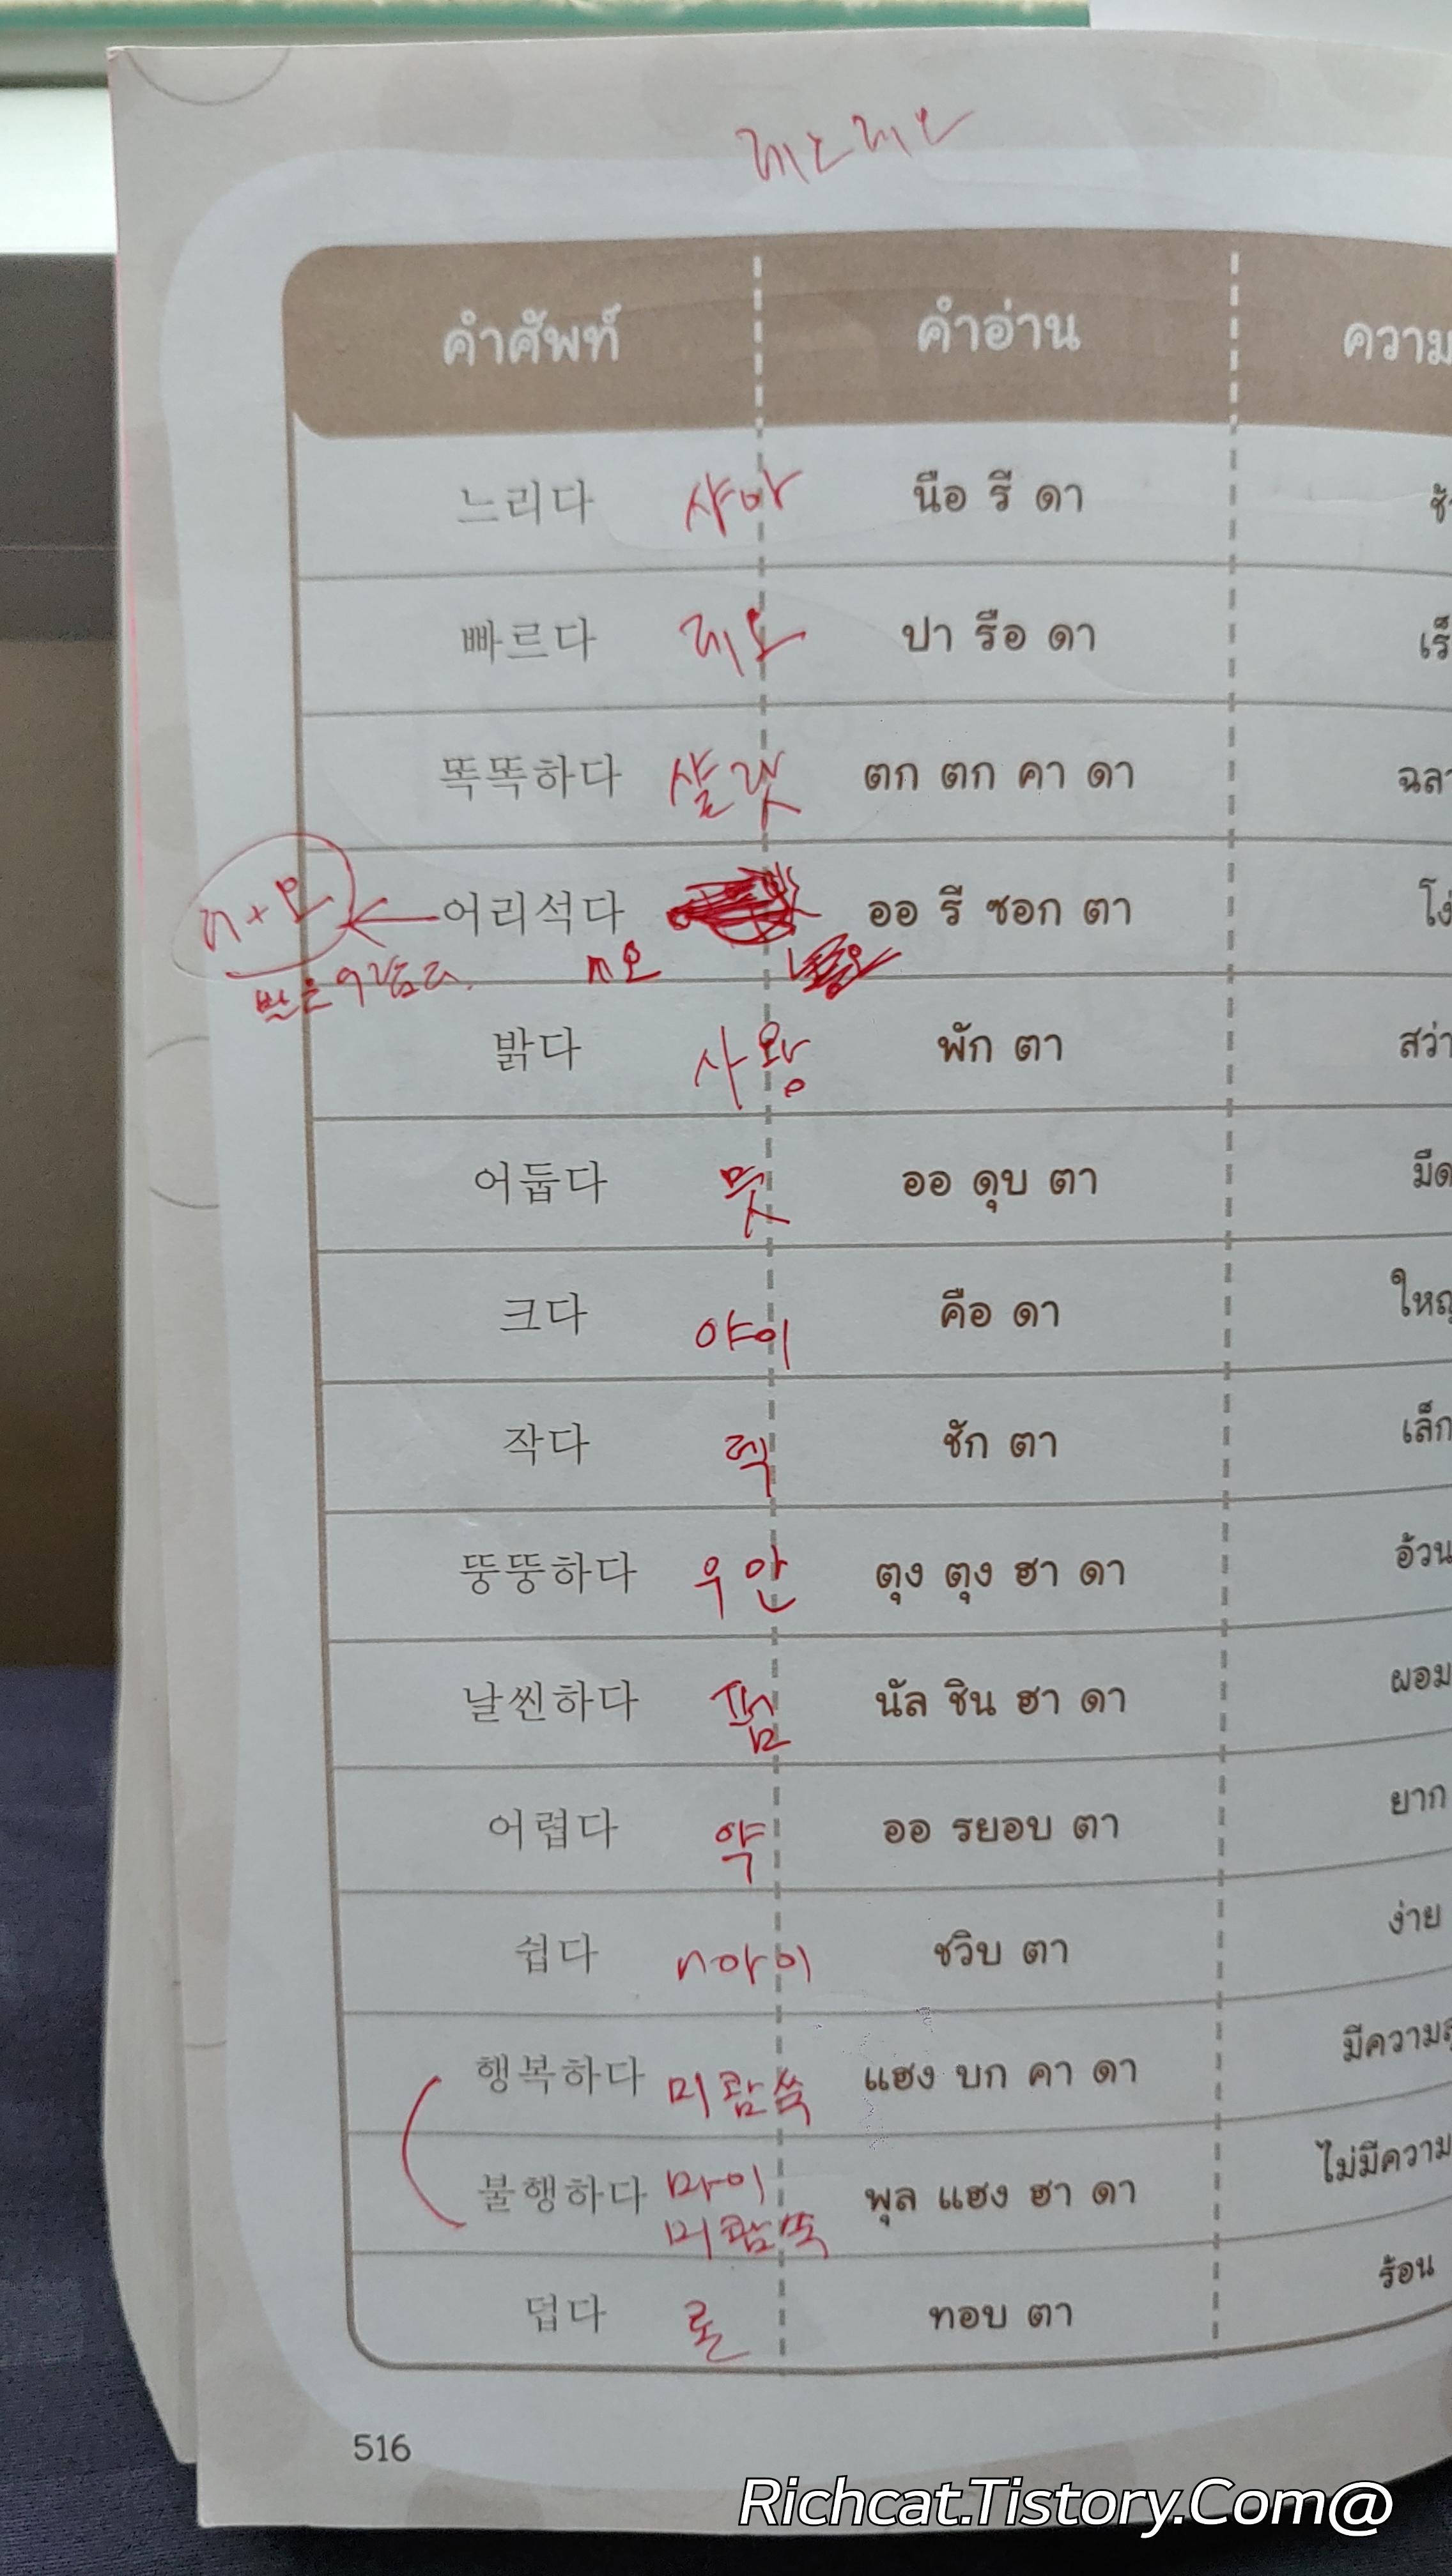 레오레오
คำศัพท์ คำอ่าน ความ
느리다 샤아 นือ รี ดา ช้า
빠르다 레오 ปา รือ ดา เร็
똑똑하다 샬랏 ตก ตก คา ดา ฉลา
어리석다 ออ รี ซอก ตา โง่
밝다 사왕 พัก ตา สว่า
어둡다 뭇 ออ ดุบ ตา มืด
크다 야이 คือ ดา ใหญ
작다 렉 ชัก ตา เล็ก
뚱뚱하다 우안 ตุง ตุง ฮา ดา อ้วน
날씬하다 펌 นัล ชิน ฮา ดา ผอม
어렵다 약 ออ รยอบ ตา ยาก
쉽다 n아이 ชวิบ ตา ง่าย
행복하다 미쾀쑥 แฮง บก คา ดา มีความสุ
불행하다 마이 พุล แฮง ฮา ดา ไม่มีความ
미쾀쑥
덥다 론 ทอบ ตา ร้อน
516
Richcat.Tistory.Com@